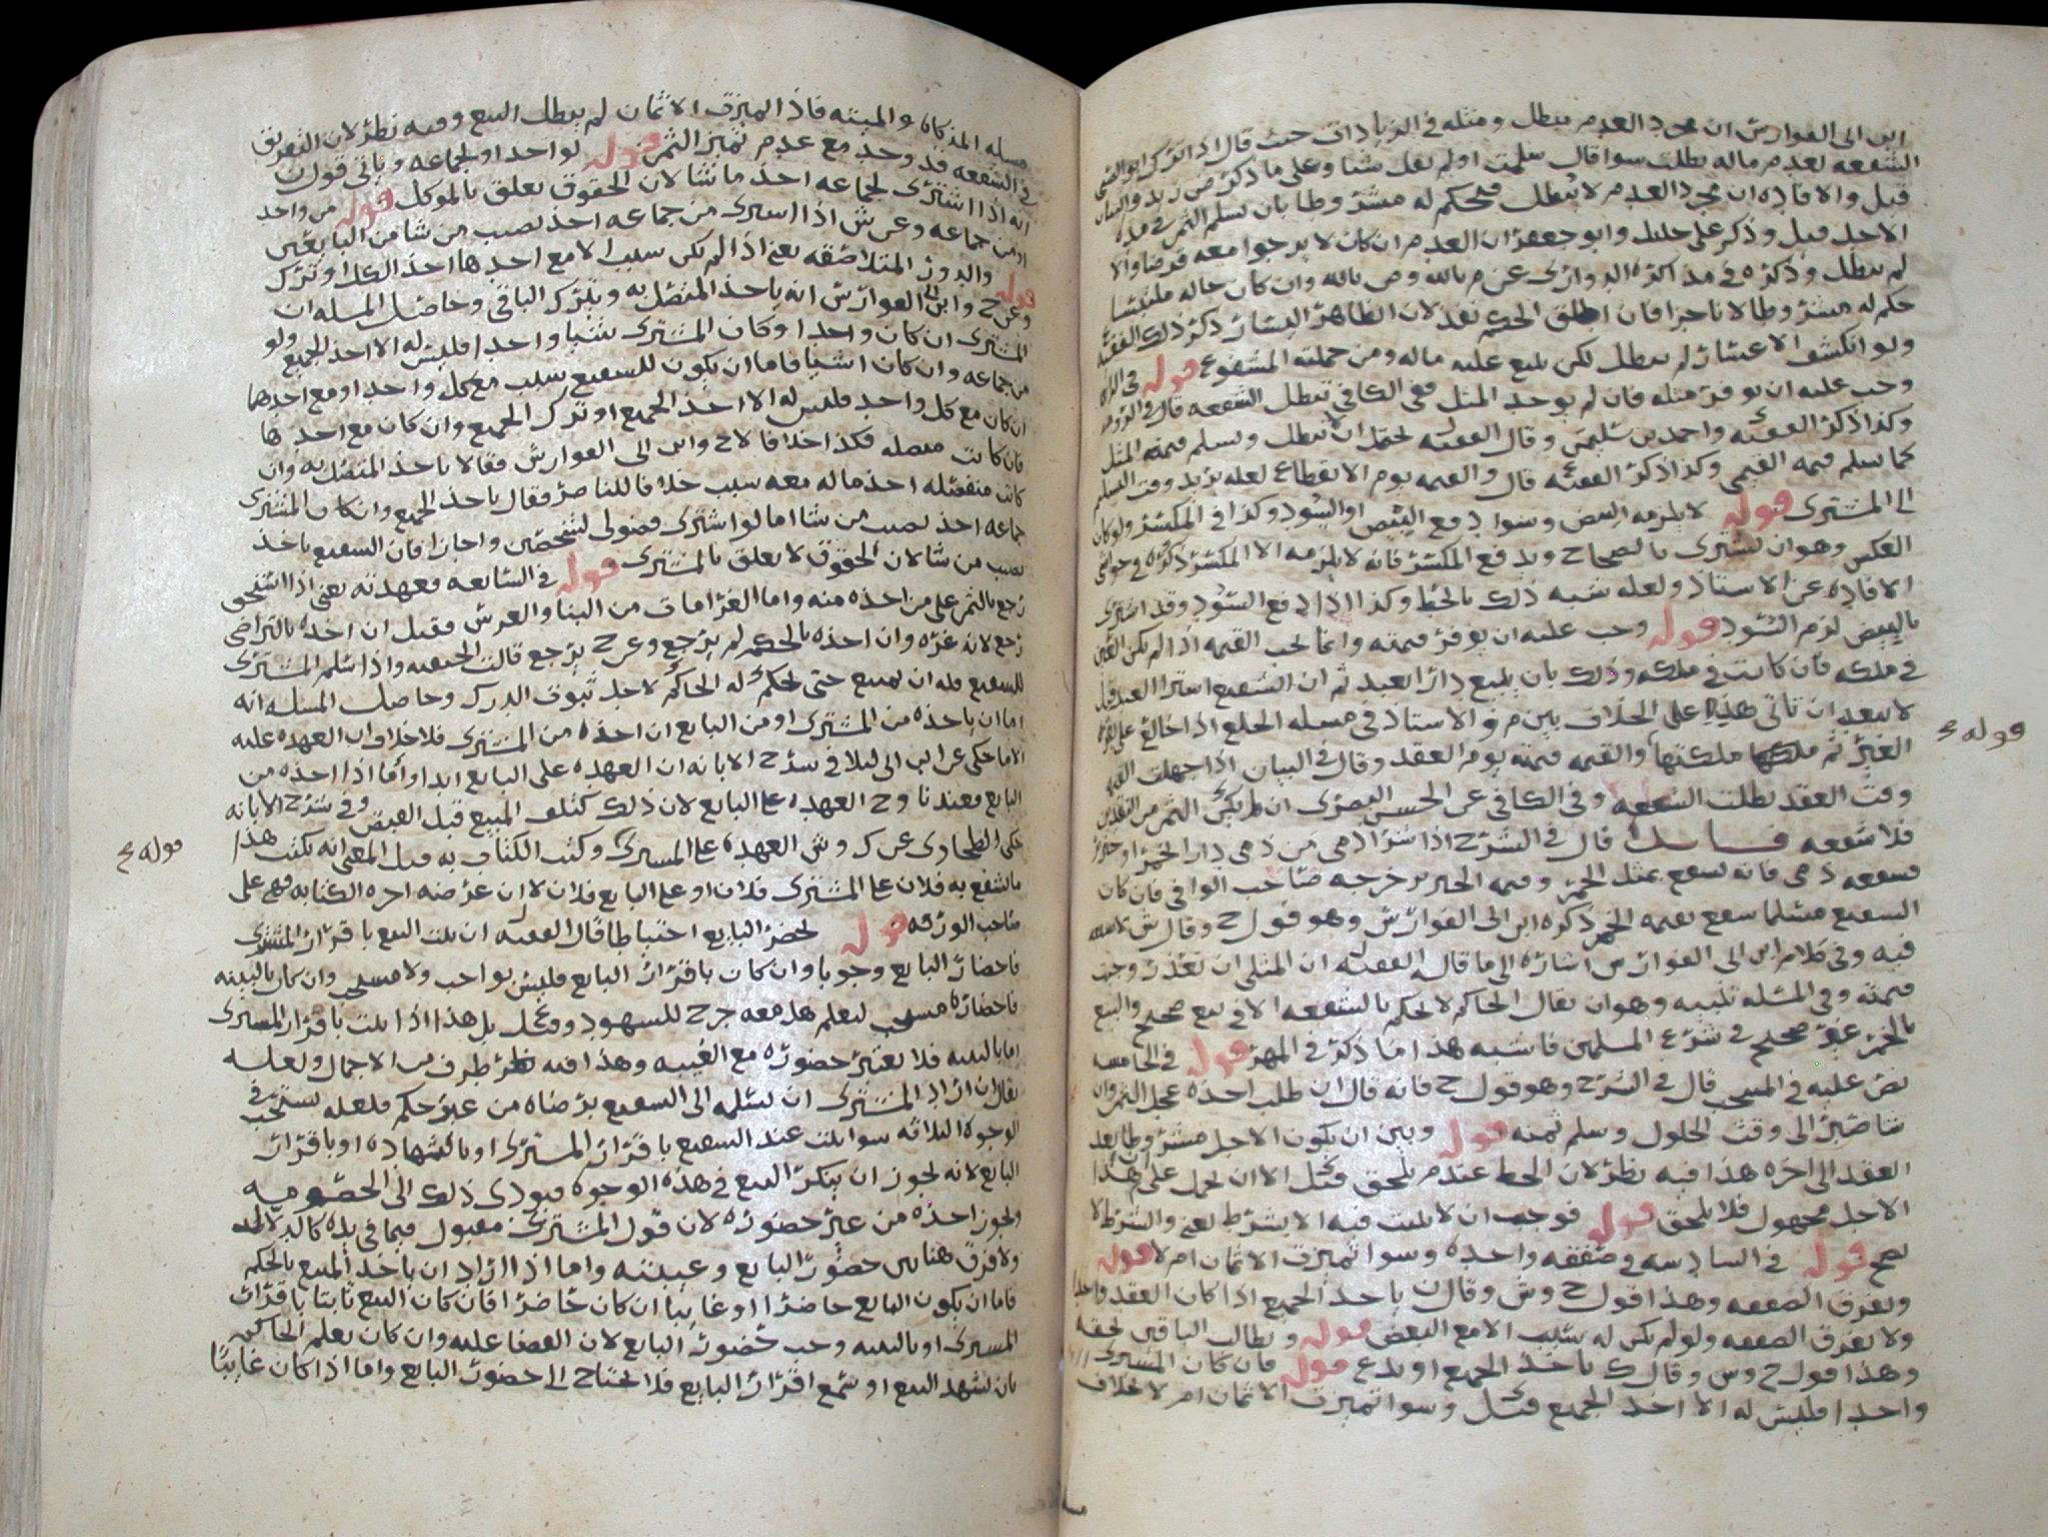 ابن ابي الفوارس ان مجرد العدم يبطل ومثله في الزيادات حيث قال اذا ترك
الشفعه لعدم ماله بطلت سوا قال سلمت او لم يقل شيا وعلى ما ذكر ص زيد
قيل والافاده ان مجرد العدم لا يبطل فيحكم له مشروطا بان يسلم الثمن في مده
الاجل قيل وذكر علي خليل وابو جعفر ان العدم ان كان لا يرجوا معه قرضا والا
لم يبطل وذكره في مذاكره الدواري عن م بالله وص بالله وان كان حاله ملتبسا
حكم له مشروطا لا ناجزا فان اطلق الحكم نفذ لان الظاهر اليسار ذكر ذلك الفقيه
ولو انكشف الاعسار لم يبطل لكن يبيع عليه ماله ومن جملته المشفوع قوله
وجب عليه ان يوفر مثله فان لم يوجد المثل ففي الكافي تبطل الشفعه قال
وكذا ذكر الفقيه واحمد بن سليمن وقال الفقيه يحتمل ان لا تبطل ويسلم قيمه المثل
كما يسلم قيمه القيمي وكذا ذكر الفقيه قال والقيمه يوم الانقطاع لعله يريد وقت التسليم
الى المشتري قوله لا يلزمه البيض وسواد مع البيض او السود وكذا في المكسر ولو كان
العكس وهو ان يشتري بالصحاح ويدفع المكسر فانه لا يلزمه الا المكسر ذكره في حواشي
الافاده عن الاستاذ ولعله شبه ذلك بالحط وكذا اذا دفع السود وقد اشترى
بالبيض لزم السود قوله وجب عليه ان يوفر قيمته وانما تجب القيمه اذا لم تكن العين
في ملكه فان كانت في ملكه وذلك بان يبيع دارا لعبد ثم ان الشفيع اشترا العبد قيل
لا يبعد ان تاتي هذه على الخلاف بين م والاستاذ في مسله الخلع اذا خالع على
الغير ثم ملكتها والقيمه قيمته يوم العقد وقال في البيان اذا جهلت القيمه
وقت العقد بطلت الشفعه وفي الكافي عن الحسن البصري ان لم يكن الثمن من النقدين
فلا شفعه قال في الشرح اذا شرا ذمي من ذمي دارا بخمر او خنزير
فشفعه ذمي فانه يشفع بمثل الخمر وقيمه الخنزير خرجه صاحب الوافي فان كان
الشفيع مسلما شفع بقيمه الخمر ذكره ابن ابي الفوارس وهو قول ح وقال ش
فيه وفي كلام ابن ابي الفوارس اشاره الى ما قاله الفقيه ان المثلي ان تعذر وجبت
قيمته وفي المسله تنبيه وهو ان يقال الحاكم لا يحكم بالشفعه الا في بيع صحيح والبيع
بالخمر غير صحيح في شرع المسلمين فاشبه هذا ما ذكر في المهر قوله في الخامسه
نص عليه في قال في الشرح وهو قول ح فانه قال ان طلب اخذه عجل الثمن وان
شا صبر الى وقت الحلول وسلم ثمنه قوله وبين ان يكون الاجل مشروطا بعد
العقد الى اخره هذا فيه نظر لان الحط عندم يلحق قيل الا ان يحمل على هذا
الاجل مجهول فلا يلحق قوله فوجب ان لا يثبت فيه الا بشرط يعني والشرط لا
يصح قوله في السادسه في صفقه واحده وسوا تميزت الاثمان ام لا قوله
وتفرق الصفقه وهذا قول ح وش وقال ن ياخذ الجميع اذا كان العقد واحدا
ولا تفرق الصفقه ولو لم يكن له سبب الا مع البعض قوله ويطالب الباقين بحقه
وهذا قول ح وس وقال ك ياخذ الجميع او يدع قوله فان كان المشتري
واحدا فليس له الا اخذ الجميع قيل وسوا تميزت الاثمان ام لا بخلاف
قوله ع
مسله المذكاه والميته فاذا لم تميزت الاثمان لم يبطل البيع وفيه نظر لان التفريق
في الشفعه قد وجد مع عدم تميز الثمن قوله لو احد او لجماعه وياتي قول ن
انه اذا اشترى لجماعه اخذ ما شا لان الحقوق تعلق بالموكل قوله من واحد
او من جماعه وعن ش اذا اشترى من جماعه اخذ نصيب من شا من البايعين
قوله والدور المتلاصقه يعني اذا لم تكن سبب الا مع احدها اخذ الكل او ترك
وعن ح وابن ابي الفوارس انه ياخذ المتصل به ويترك الباقي وحاصل المسله ان
المشتري ان كان واحدا وكان المشترى شيا واحدا فليس له الا اخذ الجميع ولو
من جماعه وان كان اشيا فاما ان يكون للشفيع سبب مع كل واحد او مع احدهما
ان كان مع كل واحد فليس له الا اخذ الجميع او ترك الجميع وان كان مع احدها
فان كانت متصله فكذا خلافا لاح وابن ابي الفوارس فقالا ياخذ المتصل به وان
كانت منفصله اخذ ماله معه سبب خلافا للناصر فقال ياخذ الجميع وان كان المشتري
جماعه اخذ نصيب من شا اما لو اشترى فضولي لشخصين واجازا فان الشفيع ياخذ
نصيب من شا لان الحقوق لا تعلق بالمشتري قوله في السابعه فعهدته يعني اذا استحق
رجع بالثمن على من اخذه منه واما الغرامات من البنا والغرس فقيل ان اخذه بالتراضي
رجع لانه غره وان اخذه بالحكم لم يرجع وعن ح يرجع قالت الحنفيه واذا سلم المشتري
للشفيع فله ان يمتنع حتى يحكم له الحاكم لاجل ثبوت الدرك وحاصل المسله انه
اما ان ياخذه من المشتري او من البايع ان اخذه من المشتري فلا خلاف ان العهده عليه
الا ما حكي عن ابن ابي ليلا في شرح الابانه ان العهده على البايع ابدا واما اذا اخذه من
البايع فعندنا وح العهده على البايع لان ذلك كتلف المبيع قبل القبض وفي شرح الابانه
حكى الطحاوي عن ك وش العهده على المشتري وكتب الكتاب به قيل المعنى انه يكتب هذا
ما شفع به فلان على المشتري فلان او على البايع فلان لا ان غرضه اجره الكتابه فهي على
صاحب الورقه قوله يحضر البايع احتياطا قال الفقيه ان ثبت البيع باقرار المشتري
فاحضار البايع وجوبا وان كان باقرار البايع فليس بواجب ولا مستحب وان كان بالبينه
فاحضاره مستحب ليعلم هل معه جرح للشهود وقيل بل هذا اذا ثبت باقرار المشتري
اما بالبينه فلا يعتبر حضوره مع الغيبه وهذا فيه نظر طرف من الاجمال ولعله
يقال ان اراد المشتري ان يسلمه الى الشفيع برضاه من غير حكم فلعله يستحب في
الوجوه الثلاثه سوا ثبت عند الشفيع باقرار المشتري او بالشهاده او باقرار
البايع لانه يجوز ان ينكر البيع في هذه الوجوه فيودي ذلك الى الخصوميه
ويجوز اخذه من غير حضوره لان قول المشتري مقبول فيما في يده
ولا فرق هنا بين حضور البايع وغيبته واما اذا اراد ان ياخذ المبيع بالحكم
فاما ان يكون البايع حاضرا او غايبا ان كان حاضرا فان كان البيع ثابتا باقرار
المشتري او بالبينه وجب حضور البايع لان القضا عليه وان كان بعلم الحاكم
بان يشهد البيع او سمع اقرار البايع فلا يحتاج الى حضور البايع واما اذا كان غايبا
قوله ع